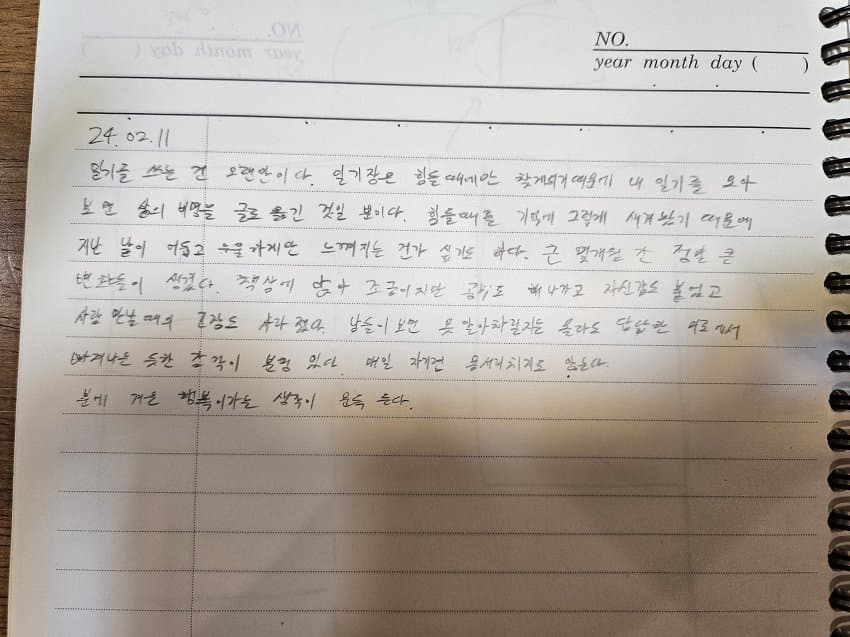 NO.
year month day (    )
24.02.11
일기를 쓰는 건 오랜만이다. 일기장은 힘들때에만 찾게되기때문에 내 일기를 모아
보면 삶의 비명을 글로 옮긴 것일 뿐이다. 힘들때를 기억에 그렇게 새겨놨기 때문에
지난 날이 어둡고 우울하게만 느껴지는 건가 싶기도 하다. 근 몇개월 간 정말 큰
변화들이 생겼다. 책상에 앉아 조금이지만 공부도 해나가고 자신감도 붙었고
사람 만날때의 긴장도 사라졌다. 남들이 보면 못 알아차릴지는 몰라도 답답한 미로에서
빠져나온 듯한 감각이 분명 있다. 매일 자기전 몸서리치지도 않는다.
분에 겨운 행복이라는 생각이 문득 든다.